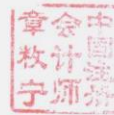 中国注册
会计师
章敉宁